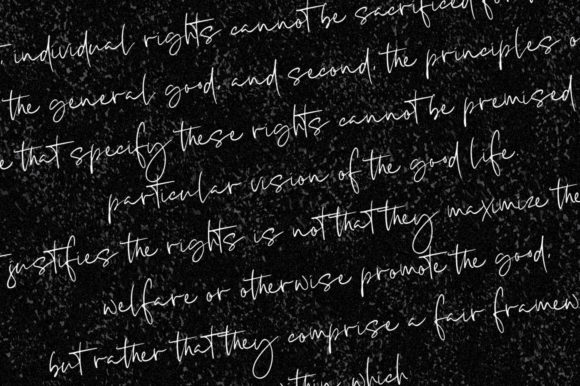 individual rights cannot be sacrificed for
the general good, and second, the principles o
e that specify these rights cannot be premised
particular vision of the good life.
t justifies the rights is not that they maximize the
welfare or otherwise promote the good,
but rather that they comprise a fair framew
which